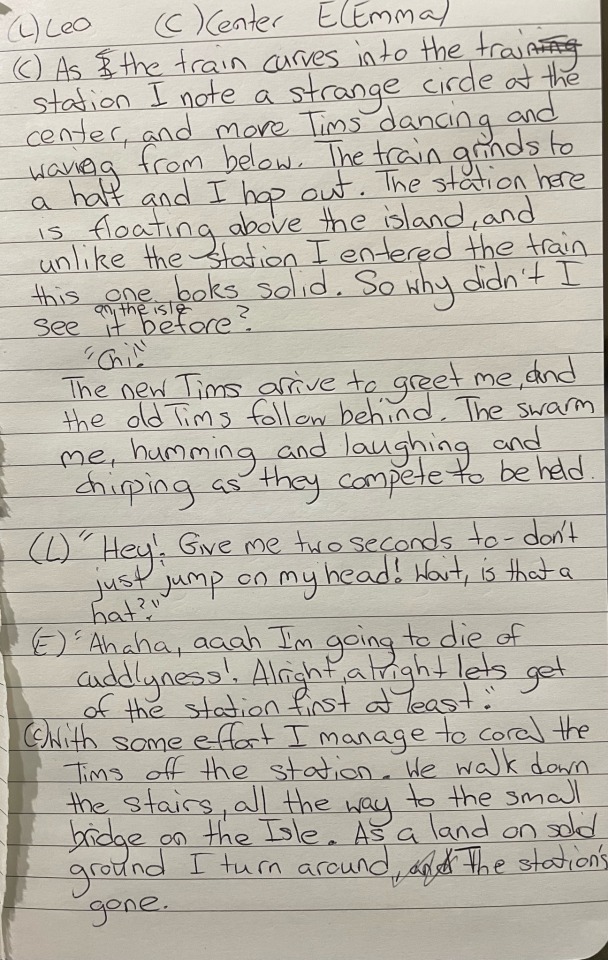 (L) Leo (C) Center E(Emma)
(C) As the train curves into the train
station I note a strange circle at the
center, and more Tims dancing and
waving from below. The train grinds to
a halt and I hop out. The station here
is floating above the island, and
unlike the station I entered the train
this one looks solid. So why didn't I
on the isle
see it before?
"Chi!"
The new Tims arrive to greet me, and
the old Tims follow behind. The swarm
me, humming and laughing and
chirping as they compete to be held.
(L) "Hey! Give me two seconds to - don't
just jump on my head! Wait, is that a
hat?"
(E) "Ahaha, aaah I'm going to die of
cuddlyness! Alright, alright lets get
of the station first at least."
(C) With some effort I manage to coral the
Tims off the station. We walk down
the stairs, all the way to the small
bridge on the Isle. As a land on solid
ground I turn around, The station's
gone.